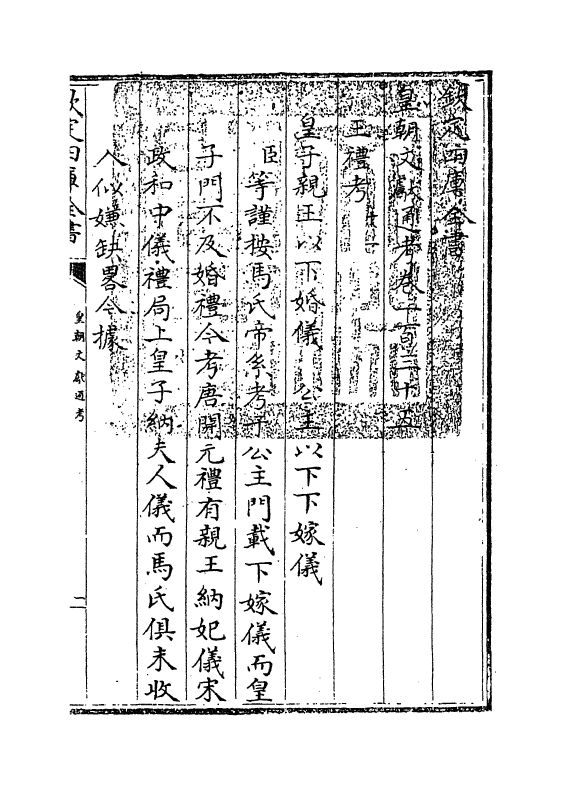 欽定四庫全書
皇朝文獻通考卷一百五十三
王禮考
皇子親王以下婚儀 公主以下下嫁儀
臣等謹按馬氏帝系考于公主門載下嫁儀而皇
子門不及婚禮今考唐開元禮有親王納妃儀宋
政和中儀禮局上皇子納夫人儀而馬氏俱未收
入似嫌缺畧今據
欽定四庫全書
皇朝文獻通考
二